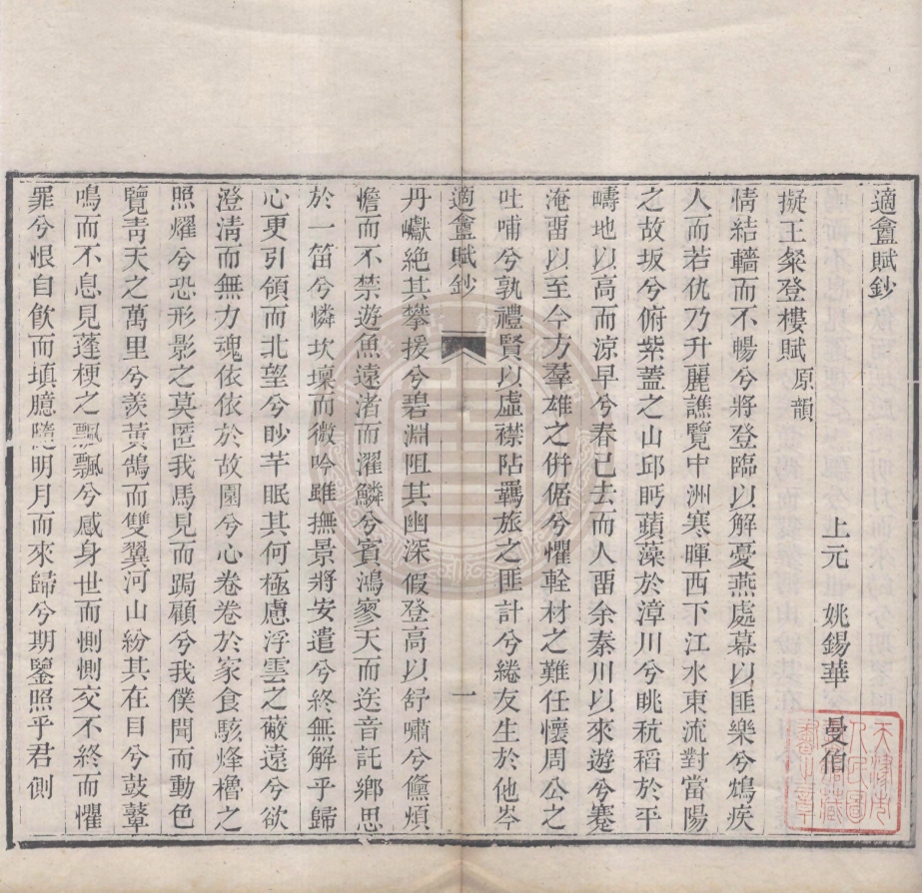 適盦賦鈔
上元　姚錫華　曼伯
擬王粲登樓賦 原韻
情結轖而不暢兮將登臨以解憂燕處幕以匪樂兮鴆疾
人而若仇乃升麗譙覽中洲寒暉西下江水東流對當陽
之故坂兮俯紫蓋之山邱眄蘋藻於漳川兮眺秔稻於平
疇地以高而涼早兮春已去而人畱余秦川以來遊兮蹇
淹畱以至今方羣雄之併倨兮懼輇材之難任懷周公之
吐哺兮孰禮賢以虛襟阽羈旅之匪計兮綣友生於他岑
適盦賦鈔　一
丹巘絶其攀援兮碧淵阻其幽深假登高以舒嘯兮儻煩
憺而不禁遊魚遠渚而濯鱗兮賓鴻寥天而送音託鄉思
於一笛兮憐坎壈而微吟雖撫景將安遣兮終無解乎歸
心更引領而北望兮眇芊眠其何極慮浮雲之蔽遠兮欲
澄清而無力魂依依於故園兮心卷卷於家食駭烽櫓之
照燿兮恐形影之莫匿我馬見而跼顧兮我僕聞而動色
覽靑天之萬里兮羨黃鵠而雙翼河山紛其在目兮鼓鼙
鳴而不息見蓬梗之飄飄兮感身世而惻惻交不終而懼
罪兮恨自飮而塡臆隨明月而來歸兮期鑒照乎君側